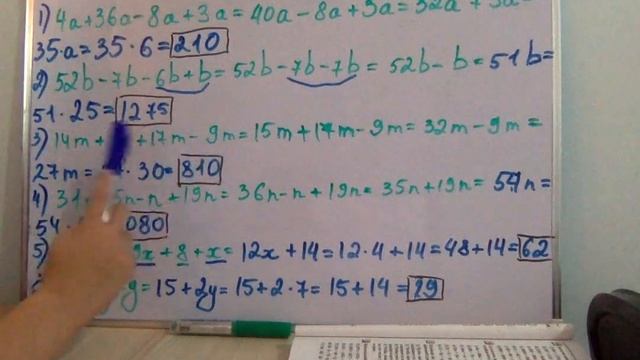 1) 4a+36a-8a+3a=40a-8a+3a=32a+3a=
35·a=35·6=210
2) 52b-7b-6b+b=52b-7b-7b=52b-b=51b=
51·25=1275
3) 14m+ +17m-9m=15m+17m-9m=32m-9m=
27m= ·30=810
4) 5n-n+19n=36n-n+19n=35n+19n=54n=
54 080
5) 9x+8+x=12x+14=12·4+14=48+14=62
y=15+2y=15+2·7=15+14=29